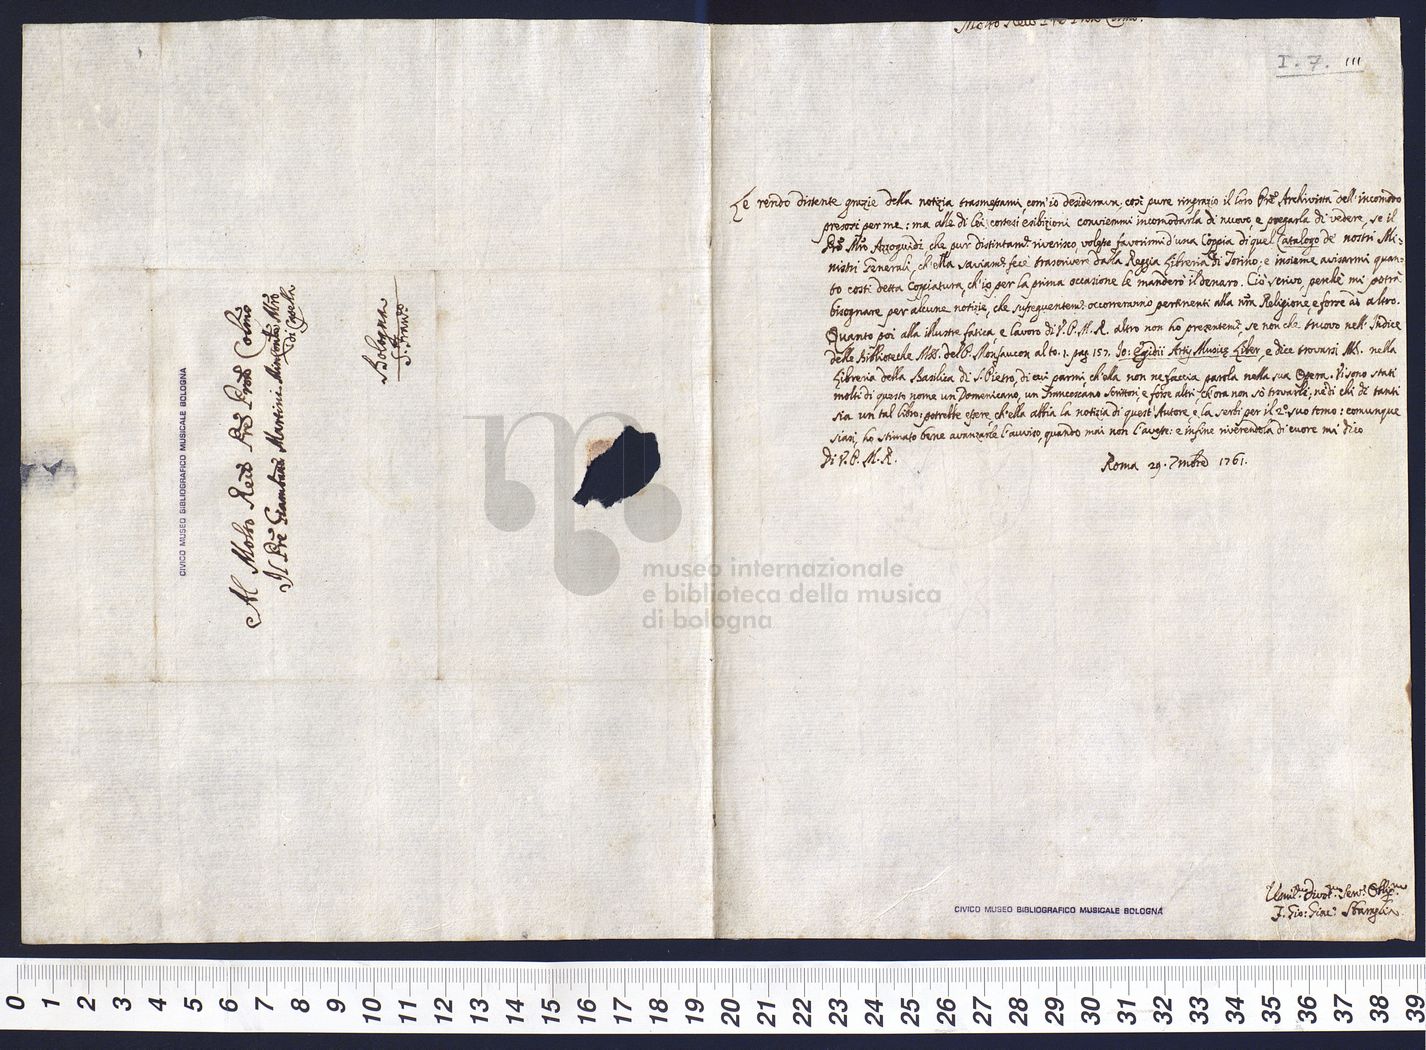 Al Molto Rev.do P.re P.ron Col.mo
Il P.re Giambatta Martini Min. Con.le M.ro
di Capella
Bologna
S. Fran.co
CIVICO MUSEO BIBLIOGRAFICO MUSICALE BOLOGNA
Molto Rev.do P.re P.ron Col.mo
I. 7. 111
Le rendo distente grazie della notizia trasmessami, com'io desiderava: così pure ringrazio il loro P.re Archivista dell'incomodo
presosi per me: ma alle di lei cortesi esibizioni conviemmi incomodarla di nuovo, e pregarla di vedere, se il
P.re M.ro Azzoguidi che pur distintam.e riverisco, volesse favorirmi d'una Coppia di quel Catalogo de nostri Mi-
nistri Generali, ch'ella saviam.e fece trascrivere dalla Reggia Libreria di Torino: e insieme avisarmi quan-
to costi detta Coppiatura, ch'io per la prima occasione le manderò il denaro. Ciò scrivo, perchè mi potrà
bisognare per alcune notizie, che susseguentem.e occorreranno pertinenti alla n.ra Religione, e forse ad altro.
Quanto poi alla illustre fatica, e lavoro di V. P. M. R. altro non ho presentem.e, se non che truovo nell'Indice
delle Biblioteche MSS. del P. Monfaucon al to. 1. pag. 157. Jo: Egidii Artis Musicæ Liber, e dice trovarsi MS. nella
Libreria della Basilica di S. Pietro, di cui parmi, ch'ella non ne faccia parola nella sua Opera. Vi sono stati
molti di questo nome un Domenicano, un Francescano Scrittori, e forse altri, ch'ora non sò trovarli; nè di chi de tanti
sia un tal libro: potrebbe essere, ch'ella abbia la notizia di quest'Autore, e la serbi per il 2.o suo tomo: comunque
siasi, ho stimato bene avanzarle l'avviso, quando mai non l'avesse: e infine riverendola di cuore mi dico
Di V. P. M. R. Roma 29. 7mbre 1761.
Umil.mo Divot.mo Serv.e Obblig.mo
F. Gio: Giac.o Sbaraglia
CIVICO MUSEO BIBLIOGRAFICO MUSICALE BOLOGNA
museo internazionale
e biblioteca della musica
di bologna
0 1 2 3 4 5 6 7 8 9 10 11 12 13 14 15 16 17 18 19 20 21 22 23 24 25 26 27 28 29 30 31 32 33 34 35 36 37 38 39